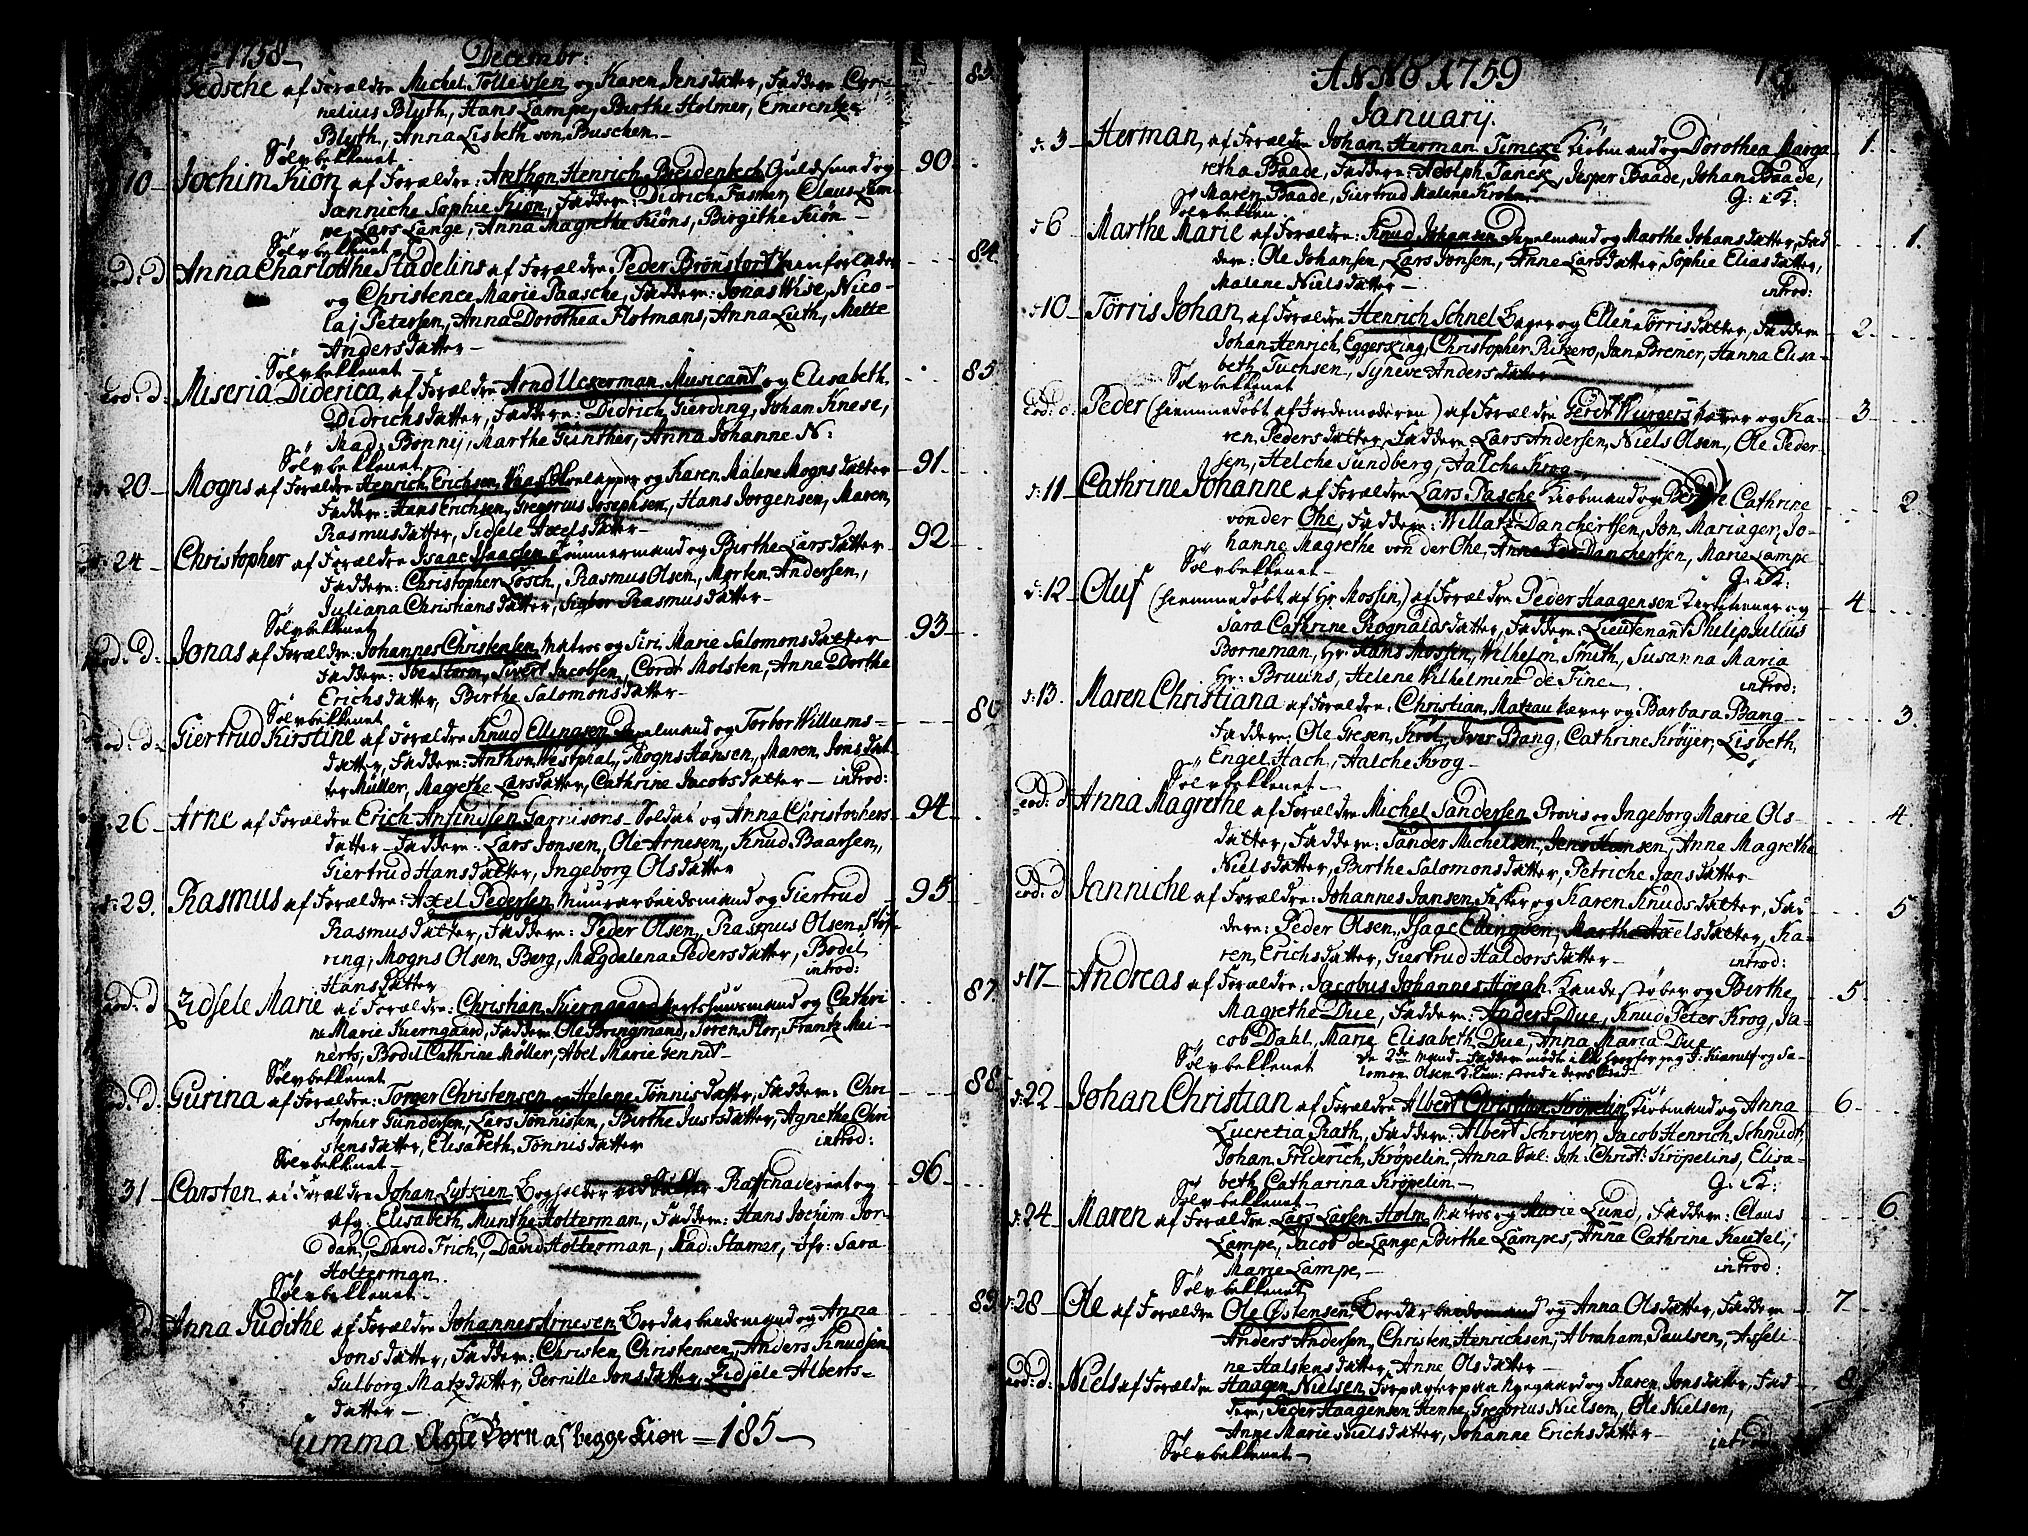 1758 Decembr:
Zedsche af Forældre Michel Tollevsen og Karen Jensdatter, Faddere Cor-
nelius Blyth, Hans Lampe, Birthe Holmer, Emerentze
Blyth, Anna Lisbeth von Buschen
83.
Sølvbekkenet
10 Jochim Kiön af Forældre: Anthon Henrich Breidenbech Guldsmed og 90
Janniche Sophie Kiön, Faddere: Didrich Fasmer, Claus Lam-
pe, Lars Lange, Anna Magrethe Kiöns, Birgithe Kiön
Sølvbekkenet
Eod: d Anna Charlotthe Stadelins af Forældre Peder Brönstorf 84
og Christence Marie Paasche, Faddere: Jonas Wise, Nico-
laj Petersen, Anna Dorothea Flotmans, Anna Luth, Mette
Andersdatter
Sølvbekkenet
Eod. d. Miseria Diderica, af Forældre Arnd Uckerman Musicant og Elisabeth 85
Didrichsdatter, Faddere: Didrich Gierding, Johan Knese,
Mad. Bonnij, Marthe Günther, Anna Johanne N:
Sølvbekkenet
20 Mogns af Forældre Henrich Erichsen og Karen Malene Mognsdatter 91
Faddere: Hans Erichsen, Gregorius Josephsen, Hans Jorgensen, Maren
Rasmusdatter, Sidsele Axelsdatter
24 Christopher af Forældre Isaac Isaacsen Tømmermand og Birthe Larsdatter 92
Faddere: Christopher Losch, Rasmus Olsen, Morten Andersen,
Juliana Christiansdatter, Sigbor Rasmusdatter
Sølvbekkenet
Eod. D. Jonas af Forældre: Johannes Christensen Matros og Siri Marie Salomonsdatter 93
Faddere: Ibe Storm, Sivert Jacobsen, Cordt Molsten, Anne Dorthe
Erichsdatter, Birthe Salomonsdatter
Sølvbekkenet
Eod. d. Giertrud Kirstine af Forældre Knud Ellingsen og Torbor Willums- 86
datter, Faddere: Anthon Westphal, Mogns Hansen, Maren Jonsdat-
ter Müller, Magrethe Larsdatter, Cathrine Jacobsdatter introd:
26 Arne af Forældre Erich Anfindsen Garnisons Soldat og Anna Christophers- 94
datter Faddere: Lars Jonsen, Ole Arnesen, Knud Baarsen,
Giertrud Hansdatter, Ingeborg Olsdatter
29. Rasmus af Forældre: Axel Pedersen Muurarbeidsmand og Giertrud 95
Rasmusdatter, Faddere: Peder Olsen, Rasmus Olsen
ring, Mogns Olsen Berg, Magdalena Pedersdatter, Bodel
Hansdatter introd:
Eod. d Zidsele Marie af Forældre: Christian Kierngaard og Cathri- 87.
ne Marie Kierngaard, Faddere Ole Bringmand, Søren Flor, Frantz Mei-
nerts, Bodil Cathrine Møller, Abel Marie Gennet
Sølvbekkenet
Eod. D. Gurina af Forældre: Torger Christensen og Helene Tönnisdatter, Faddere: Chri- 88
stopher Gundersen, Lars Tönnissen, Birthe Justsdatter, Agnethe Chri-
stensdatter, Elisabeth Tönnisdatter introd:
Sølvbekkenet
31 Carsten af Forældre Johan Lytkien Bogholder ved Raffinaderiet og 96
Elisabeth Munthe Holterman, Faddere: Hans Jochim Jor-
dan, David Frich, David Holterman, Mad: Stamer, Jfr: Sara
Holterman
Sølvbekkenet
Anna Judithe af Forældre Johannes Arnesen og Anna 89
Jonsdatter, Faddere: Christen Christensen, Anders Knudsen
Gulborg Matzdatter, Pernille Jonsdatter, Zidsele Alberts-
datter
Summa Ægte Børn af begge Kiøn = 185
ANNO 1759
January.
3 Herman, af Forældre Johan Herman Timcke Kiøbmand og Dorothea Marga- 1.
retha Baade, Faddere: Adolph Janck, Jesper Baade, Johan Baade,
Maren Baade, Giertrud Malene Krohn
Sølvbekken
6 Marthe Marie af Forældre: Knud Johansen og Marthe Johansdatter, Fad- 1.
dere: Ole Johansen, Lars Jonsen, Anne Larsdatter, Sophie Eliasdatter,
Malene Nielsdatter introd:
10 Törris Johan af Forældre Henrich Schnel Bager og Ellen Törrisdatter, Faddere 2
Johan Henrich Eggerking, Christopher Rikzero, Jan Bremer, Hanna Elisa-
beth Fuchsen, Syneve Andersdatter
Sølvbekkenet
Eod: d: Peder (hiemmedøbt af Jordemoderen) af Forældre Gerdt Würgers og Ka- 3
ren Pedersdatter, Faddere: Lars Andersen, Niels Olsen, Ole Peder-
sen, Helche Sundberg, Aalche Krog
11 Cathrine Johanne af Forældre Lars Pasche Kiøbmand og Cathrine 2
von der Ohe, Faddere: Willatz Danchertsen, Jon Mariager, Jo-
hanne Magrethe von der Ohe, Danchertsen, Marie Lampe
Sølvbekkenet
12 Oluf (hiemmedøbt af Hr. Mossin) af Forældre Peder Haagensen og 4
Sara Cathrine Rognaldsdatter, Faddere: Lieutenant Philip Julius
Borneman, Hr: Hans Mossin, Wilhelm Smith, Susanna Maria
Hr: Bruuns, Helene Wilhelmine de Fine introd:
13. Maren Christiana af Forældre: Christian Matzau og Barbara Bang 3.
Faddere: Ole Giesen Krol, Iver Bang, Cathrine Kröyer, Lisbeth
Engel Hach, Aalche Krog
Sølvbekkenet
eod: d Anna Magrethe af Forældre Michel Sandersen og Ingeborg Marie Ols- 4.
datter, Faddere: Sander Michelsen, Jens Hansen, Anne Magretha
Nielsdatter, Birthe Salomonsdatter, Petriche Jansdatter
eod: d Janniche af Forældre: Johannes Jansen Fisker og Karen Knudsdatter, Fad- 5
dere: Peder Olsen, Isaac Ellingsen, Marthe Axelsdatter, Ka-
ren Erichsdatter, Giertrud Haldorsdatter introd:
17 Andreas af Forældre: Jacobus Johannes Höegh Kandestøber og Birthe 5.
Magrethe Due, Faddere: Anders Due, Knud Peter Krog, Ja-
cob Dahl, Marie Elisabeth Due, Anna Maria Due
Sølvbekkenet
22 Johan Christian af Forældre Albert Christian Kröpelin Kiöbmand og Anna 6
Lucretia Rath, Faddere: Albert Schriver, Jacob Henrich Schmidt,
Johan Friderich Kröpelin, Anna Sal: Joh: Christ: Kröpelins, Elisa-
beth Catharina Kröpelin
Sølvbekkenet
24 Maren af Forældre Lars Larsen Holm Matros og Marie Lund, Faddere: Claus 6.
Lampe, Jacob de Lange, Birthe Lampes, Anna Cathrine Keutel,
Marie Lampe introd:
Sølvbekkenet
28 Ole af Forældre Ole Östensen og Anna Olsdatter, Faddere 7
Anders Andersen, Christen Henrichsen, Abraham Paulsen, Asseli-
ne Halstensdatter, Anne Olsdatter
eod: d: Niels af Forældre Haagen Nielsen Forpagter paa og Karen Jonsdatter, Fad- 8
dere, Peder Haagensen Henke, Gregorius Nielsen, Ole Nielsen,
Anne Marie Nielsdatter, Johanne Erichsdatter introd
Sølvbekkenet